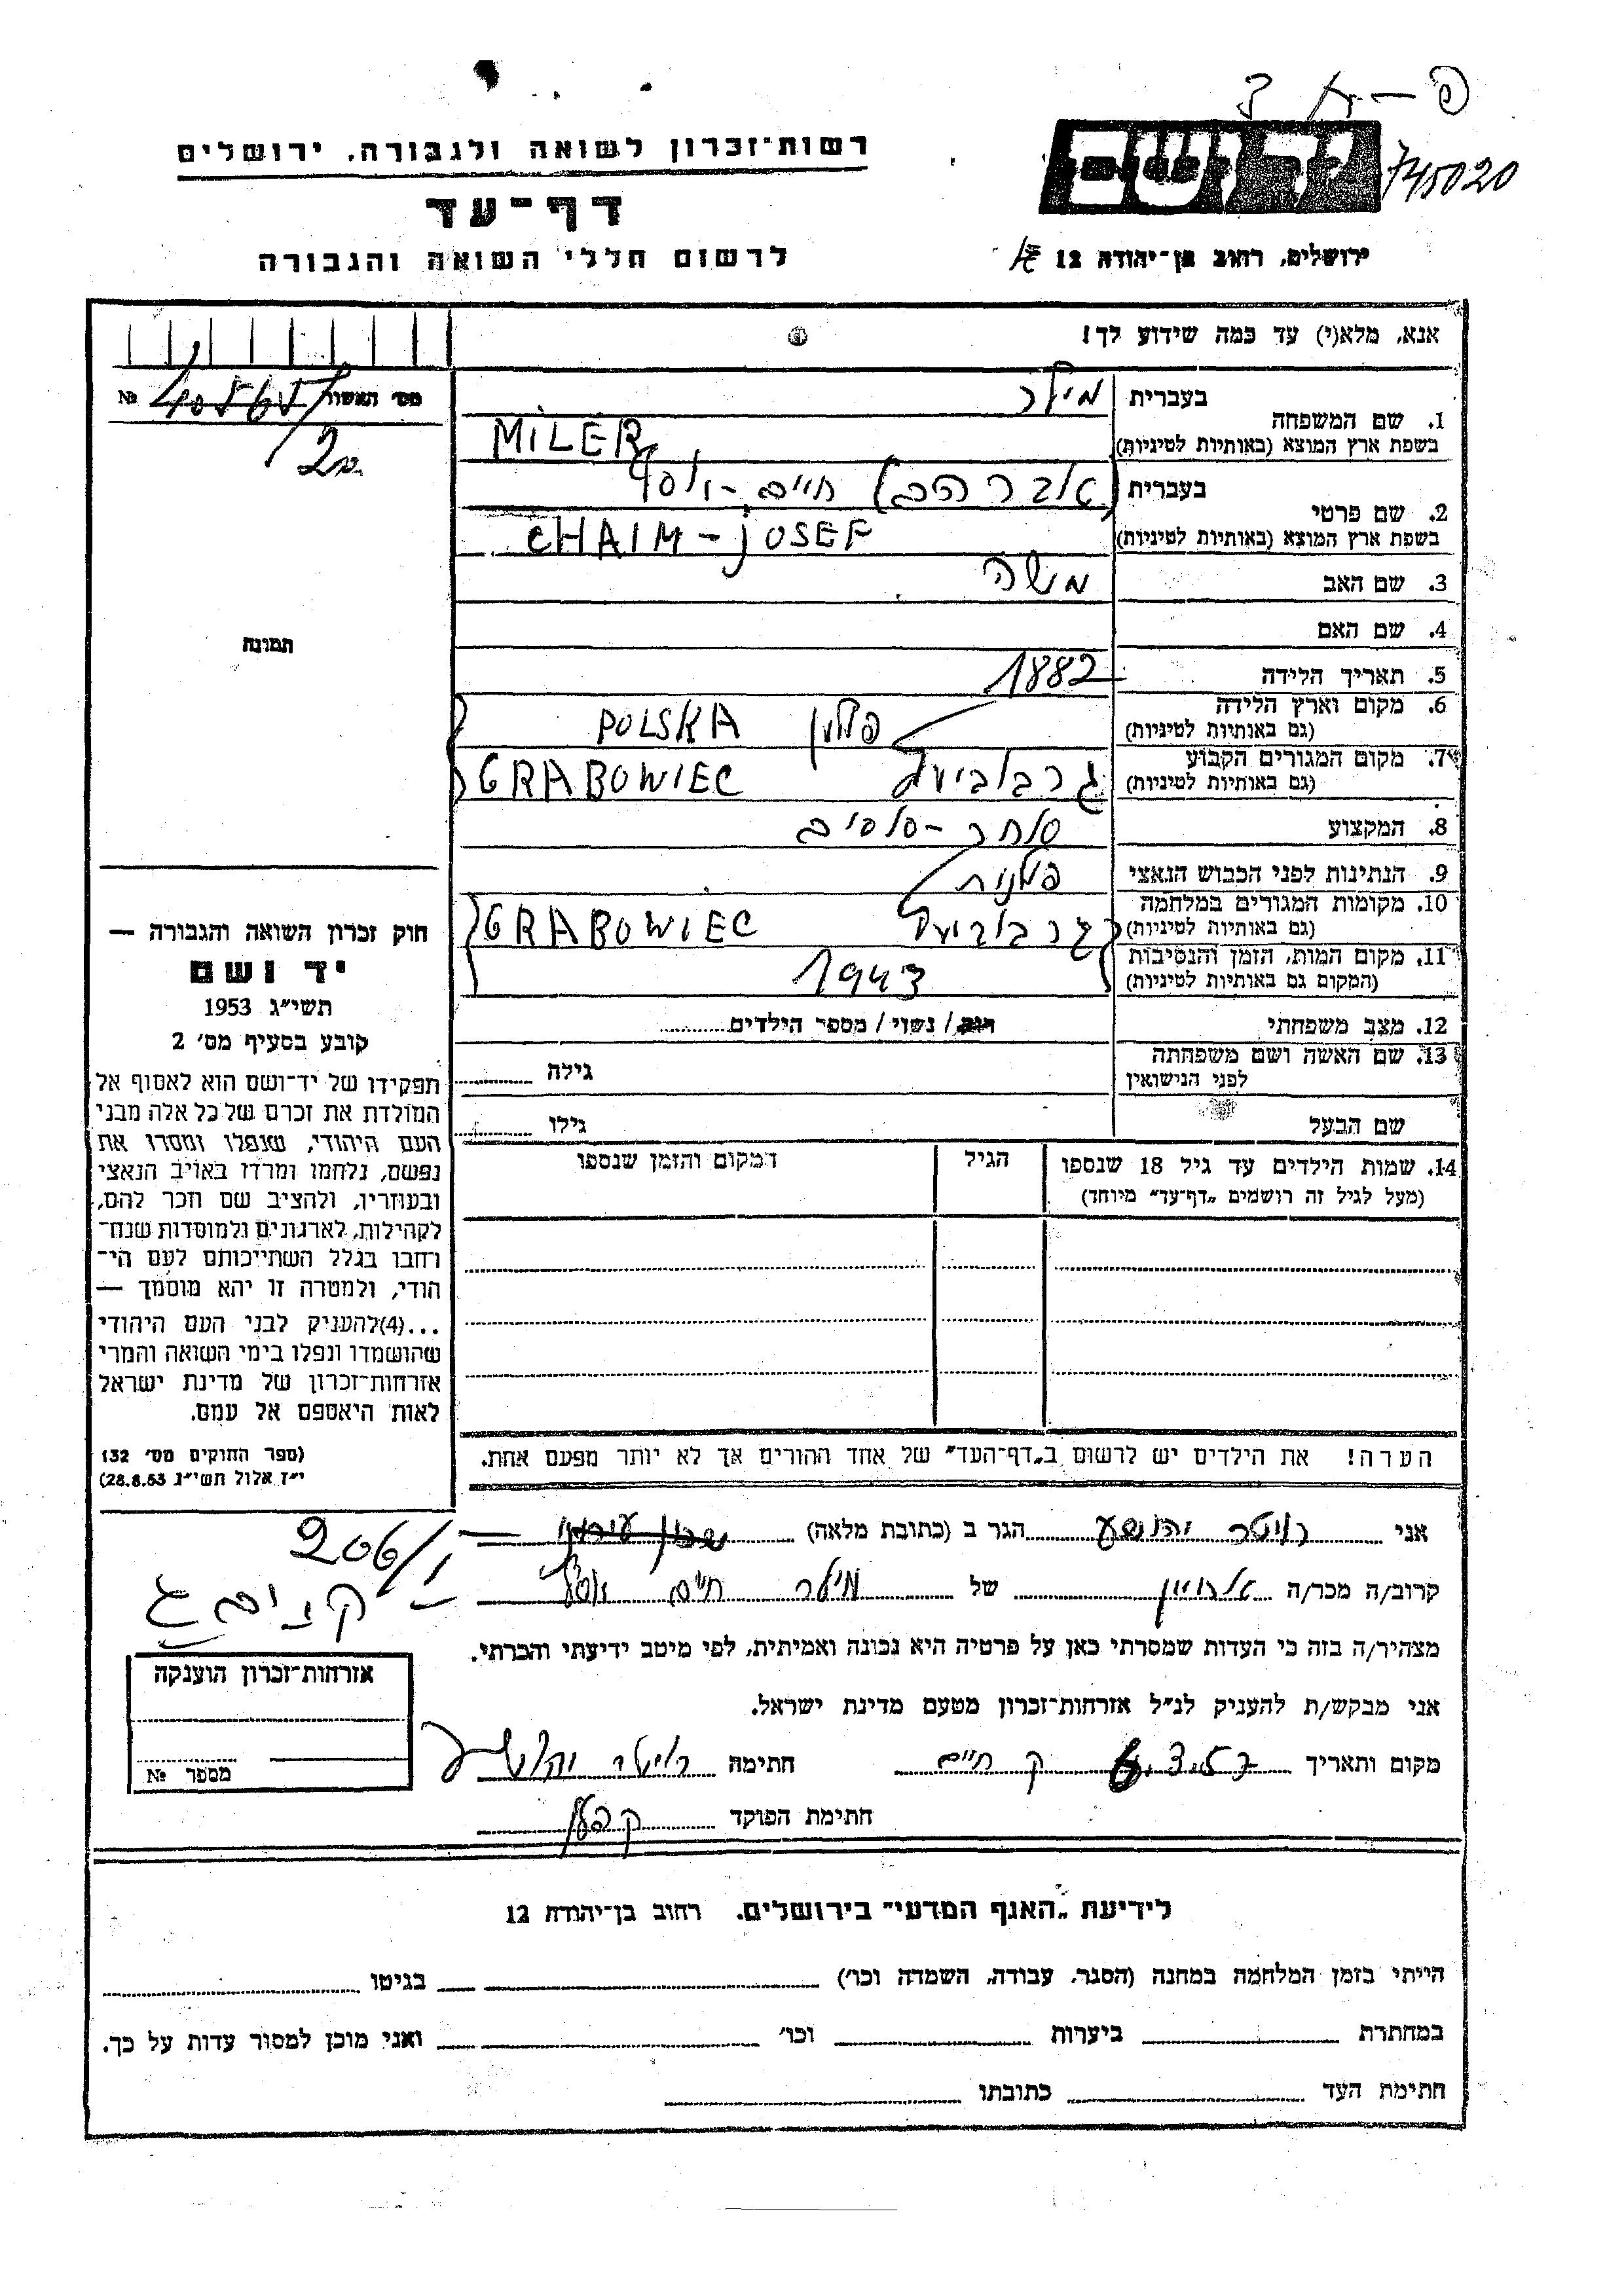 745020
רשות־זכרון לשואה ולגבורה, ירושלים
דף־עד
לרשום חללי השואה והגבורה
ירושלים, רחוב בן־יהודה 12
אנא, מלא(י) עד כמה שידוע לך!
מס׳ האשור №
1. שם המשפחה
בעברית מילר
בשפת ארץ המוצא (באותיות לטיניות) MILER
2. שם פרטי
בעברית (אברהם) חיים-יוסף
בשפת ארץ המוצא (באותיות לטיניות) CHAIM-JOSEF
3. שם האב משה
4. שם האם
5. תאריך הלידה 1882
6. מקום וארץ הלידה
(גם באותיות לטיניות) פולין POLSKA
7. מקום המגורים הקבוע
(גם באותיות לטיניות) גרבוביעץ GRABOWIEC
8. המקצוע סוחר-סוסים
9. הנתינות לפני הכבוש הנאצי פולנית
10. מקומות המגורים במלחמה
(גם באותיות לטיניות) גרבוביעץ GRABOWIEC
11. מקום המות, הזמן והנסיבות
(המקום גם באותיות לטיניות) 1943
12. מצב משפחתי רווק / נשוי / מספר הילדים
13. שם האשה ושם משפחתה
לפני הנישואין גילה
שם הבעל גילו
14. שמות הילדים עד גיל 18 שנספו
(מעל לגיל זה רושמים „דף־עד״ מיוחד)
הגיל
המקום והזמן שנספו
הערה! את הילדים יש לרשום ב„דף־העד״ של אחד ההורים אך לא יותר מפעם אחת.
תמונה
חוק זכרון השואה והגבורה —
יד ושם
תשי״ג 1953
קובע בסעיף מס׳ 2
תפקידו של יד־ושם הוא לאסוף אל
המולדת את זכרם של כל אלה מבני
העם היהודי, שנפלו ומסרו את
נפשם, נלחמו ומרדו באויב הנאצי
ובעוזריו, ולהציב שם וזכר להם,
לקהילות, לארגונים ולמוסדות שנח־
רחבו בגלל השתייכותם לעם הי־
הודי, ולמטרה זו יהא מוסמך —
...(4)להעניק לבני העם היהודי
שהושמדו ונפלו בימי השואה והמרי
אזרחות־זכרון של מדינת ישראל
לאות היאספם אל עמם.
(ספר החוקים מס׳ 132
י״ז אלול תשי״ג 28.8.53)
אני רויטר יהושע הגר ב (כתובת מלאה)
206/1
קרוב/ה מכר/ה של מילר חיים יוסף
מצהיר/ה בזה כי העדות שמסרתי כאן על פרטיה היא נכונה ואמיתית, לפי מיטב ידיעתי והכרתי.
אני מבקש/ת להעניק לנ״ל אזרחות־זכרון מטעם מדינת ישראל.
מקום ותאריך ק חיים חתימה רויטר יהושע
חתימת הפוקד
אזרחות־זכרון הוענקה
מספר №
לידיעת „האגף המדעי״ בירושלים. רחוב בן־יהודה 12
הייתי בזמן המלחמה במחנה (הסגר, עבודה, השמדה וכו׳) בגיטו
במחתרת ביערות וכו׳ ואני מוכן למסור עדות על כך.
חתימת העד כתובתו